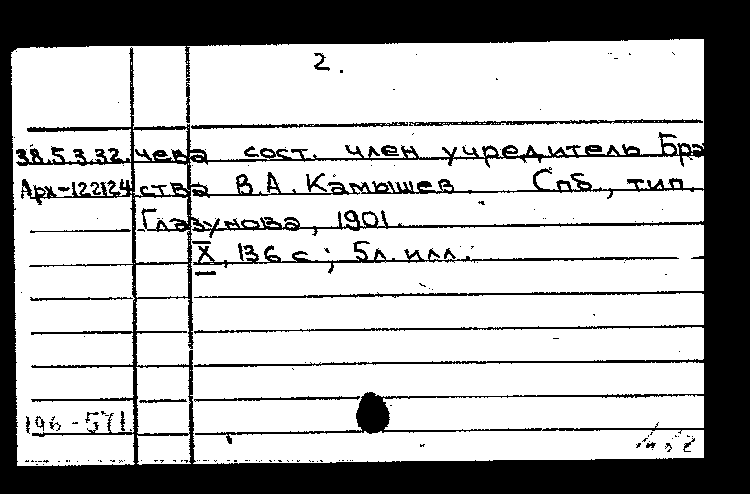 2.
38.5.3.32. чева сост. член учредитель Бра
Арх-122124 ства В.А. Камышев. Спб., тип.
Глазунова, 1901.
X, 136 с; 5л. илл.
196-571